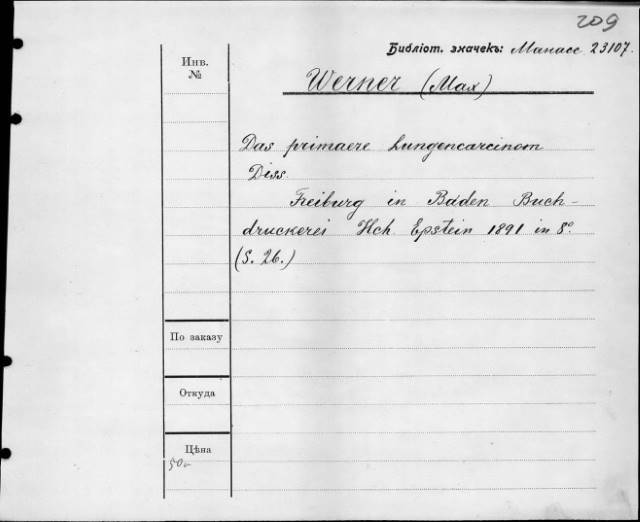 209
Библіот. значекъ: Манасс. 23107.
Инв.
№
Werner (Max)
Das primaere Lungencarcinom
Diss.
Freiburg in Baden Buch-
druckerei Hch. Epstein 1891 in 8°.
(S. 26.)
По заказу
Откуда
Цѣна